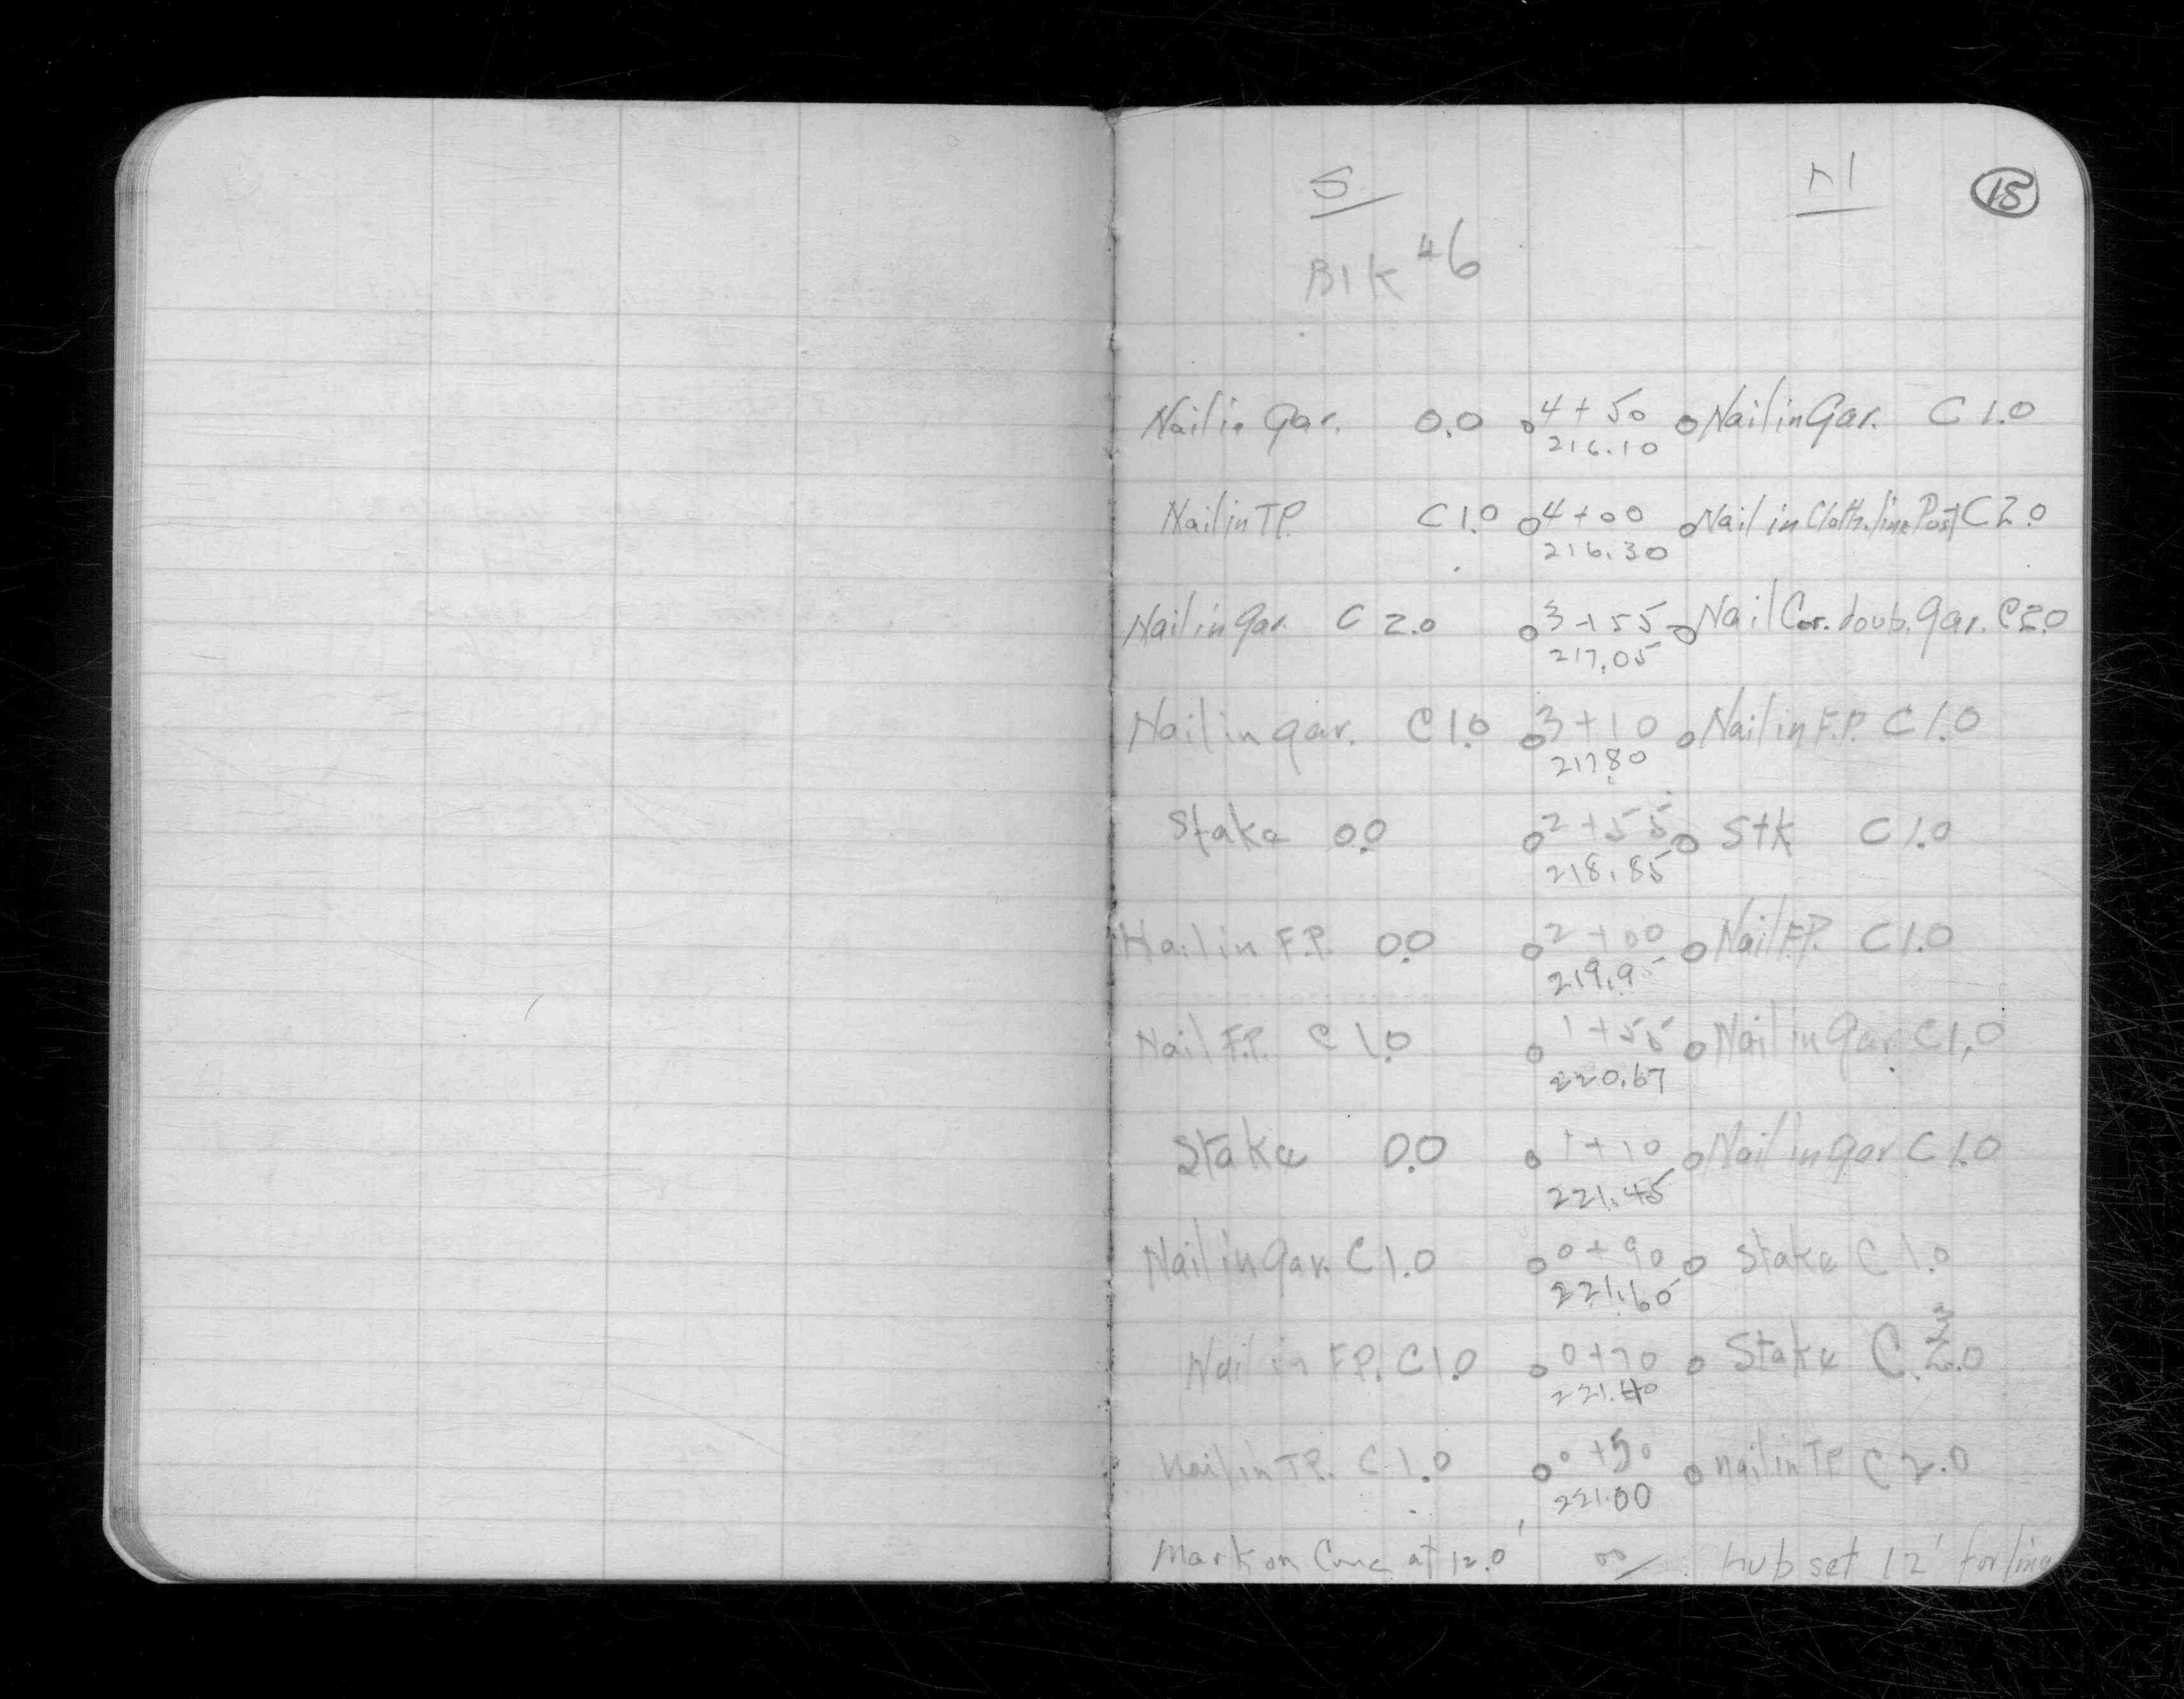 S N 15
Blk #6
Nail in Gar. 0.0 4+50 Nail in Gar. C 1.0
216.10
Nail in T.P. C 1.0 4+00 Nail in Cloth. line Post C 2.0
216.30
Nail in Gar. C 2.0 3+55 Nail Cor. doub. Gar. C 2.0
217.05
Nail in gar. C 1.0 3+10 Nail in F.P. C 1.0
217.80
Stake 0.0 2+55 Stk C 1.0
218.85
Nail in F.P. 0.0 2+00 Nail F.P. C 1.0
219.95
Nail F.P. C 1.0 1+55 Nail in Gar. C 1.0
220.67
Stake 0.0 1+10 Nail in Gar C 1.0
221.45
Nail in Gar. C 1.0 0+90 Stake C 1.0
221.60
3
Nail in F.P. C 1.0 0+70 Stake C. 2.0
221.40
Nail in T.P. C 1.0 0+50 Nail in TP C 2.0
221.00
Mark on Conc at 12.0' 00 hub set 12' for line